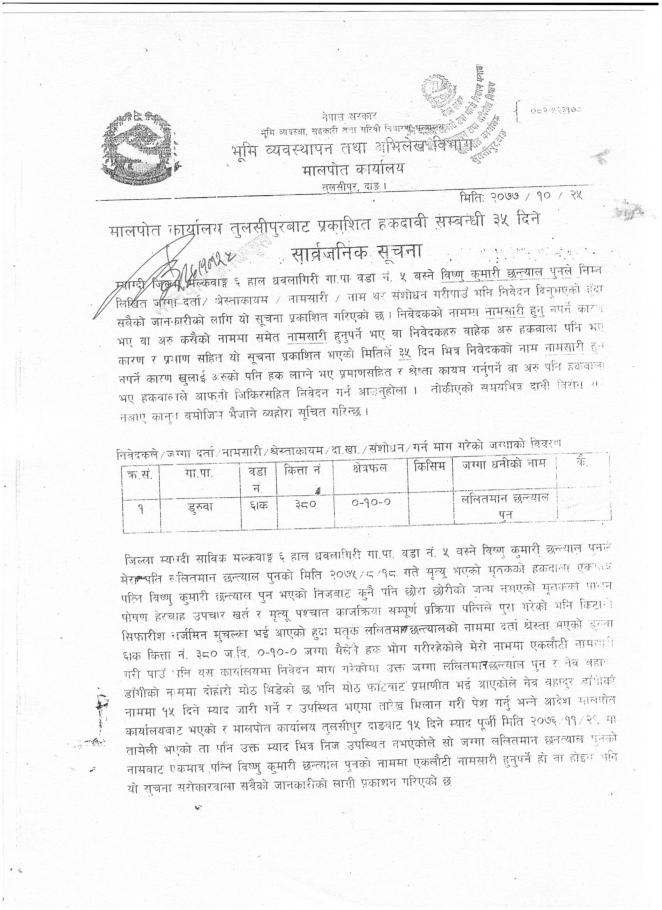 नेपाल सरकार
भूमि व्यवस्था, सहकारी तथा गरिवी निवारण मन्त्रालय
भूमि व्यवस्थापन तथा अभिलेख विभाग
मालपोत कार्यालय
तुलसीपुर, दाङ ।
मितिः २०७७ / १० / २५
मालपोत कार्यालय तुलसीपुरबाट प्रकाशित हकदावी सम्बन्धी ३५ दिने
सार्वजनिक सूचना
म्याग्दी जिल्ला मल्कवाङ्ग ६ हाल धवलागिरी गा.पा. वडा नं. ५ बस्ने विष्णु कुमारी छन्त्याल पुनले निम्न
लिखित जग्गा दर्ता/ श्रेस्ताकायम / नामसारी / नाम थर संशोधन गरीपाउँ भनि निवेदन दिनुभएको हुँदा
सवैको जानकारीको लागि यो सूचना प्रकाशित गरिएको छ । निवेदकको नाममा नामसारी हुनु नपर्ने कारण
भए वा अरु कसैको नाममा समेत नामसारी हुनुपर्ने भए वा निवेदकहरु वाहेक अरु हकवाला पनि भए
कारण र प्रमाण सहित यो सूचना प्रकाशित भएको मितिले ३५ दिन भित्र निवेदकको नाम नामसारी हुन
नपर्ने कारण खुलाई अरुको पनि हक लाग्ने भए प्रमाणसहित र श्रेष्ता कायम गर्नुपर्ने वा अरु पनि हकवाला
भए हकवालाले आफनो जिकिरसहित निवेदन गर्न आउनुहोला । तोकीएको समयभित्र दावी विरोध
नआए कानुन बमोजिम भैजाने व्यहोरा सूचित गरिन्छ ।
निवेदकले/जग्गा दर्ता/नामसारी/श्रेस्ताकायम/दा.खा./संशोधन/गर्न माग गरेको जग्गाको विवरण
क्र.सं. गा.पा. वडा नं कित्ता नं क्षेत्रफल किसिम जग्गा धनीको नाम कै.
१ डुरुवा ६ाक ३८० ०-१०-० ललितमान छन्त्याल पुन
जिल्ला म्याग्दी साविक मल्कवाङ्ग ६ हाल धवलागिरी गा.पा. वडा नं. ५ बस्ने विष्णु कुमारी छन्त्याल पुनले
मेरा पति ललितमान छन्त्याल पुनको मिति २०७५/८/१८ गते मृत्यु भएको मृतकको हकदाला
पत्नि विष्णु कुमारी छन्त्याल पुन भएको निजबाट कुनै पनि छोरा छोरीको जन्म नभएको मृतकको पालन
पोषण हेरचाह उपचार खर्त र मृत्यू पश्चात काजक्रिया सम्पूर्ण प्रक्रिया पत्निले पुरा गरेको भनि किटानी
सिफारीश सर्जमिन मुचल्का भई आएको हुदा मतृक ललितमान छन्त्यालको नाममा दर्ता श्रेस्ता भएको डुरुवा
६ाक कित्ता नं. ३८० ज.वि. ०-१०-० जग्गा मैलेनै हक भोग गरीरहेकोले मेरो नाभमा एकलौटी नामसारी
गरी पाउँ भनि यस कार्यालयमा निवेदन माग गरेकोमा उक्त जग्गा ललितमान छन्त्याल पुन र नेव वहादुर
डाँगीको नाममा दोहोरो मोठ भिडेको छ भनि मोठ फाँटबाट प्रमाणीत भई आएकोले नेव वहादुर डाँगीको
नाममा १५ दिने म्याद जारी गर्ने र उपस्थित भएमा तारेख मिलान गरी पेश गर्नु भन्ने आदेश मालपोत
कार्यालयबाट भएको र मालपोत कार्यालय तुलसीपुर दाङबाट १५ दिने म्याद पूर्जी मिति मा
तामेली भएको ता पनि उक्त म्याद भित्र निज उपस्थित नभएकोले सो जग्गा ललितमान छन्त्याल पुनको
नामबाट एकमात्र पत्नि विष्णु कुमारी छन्त्याल पुनको नाममा एकलौटी नामसारी हुनुपर्ने हो वा होइन भनि
यो सुचना सरोकारवाला सवैको जानकारीको लागी प्रकाशन गरिएको छ